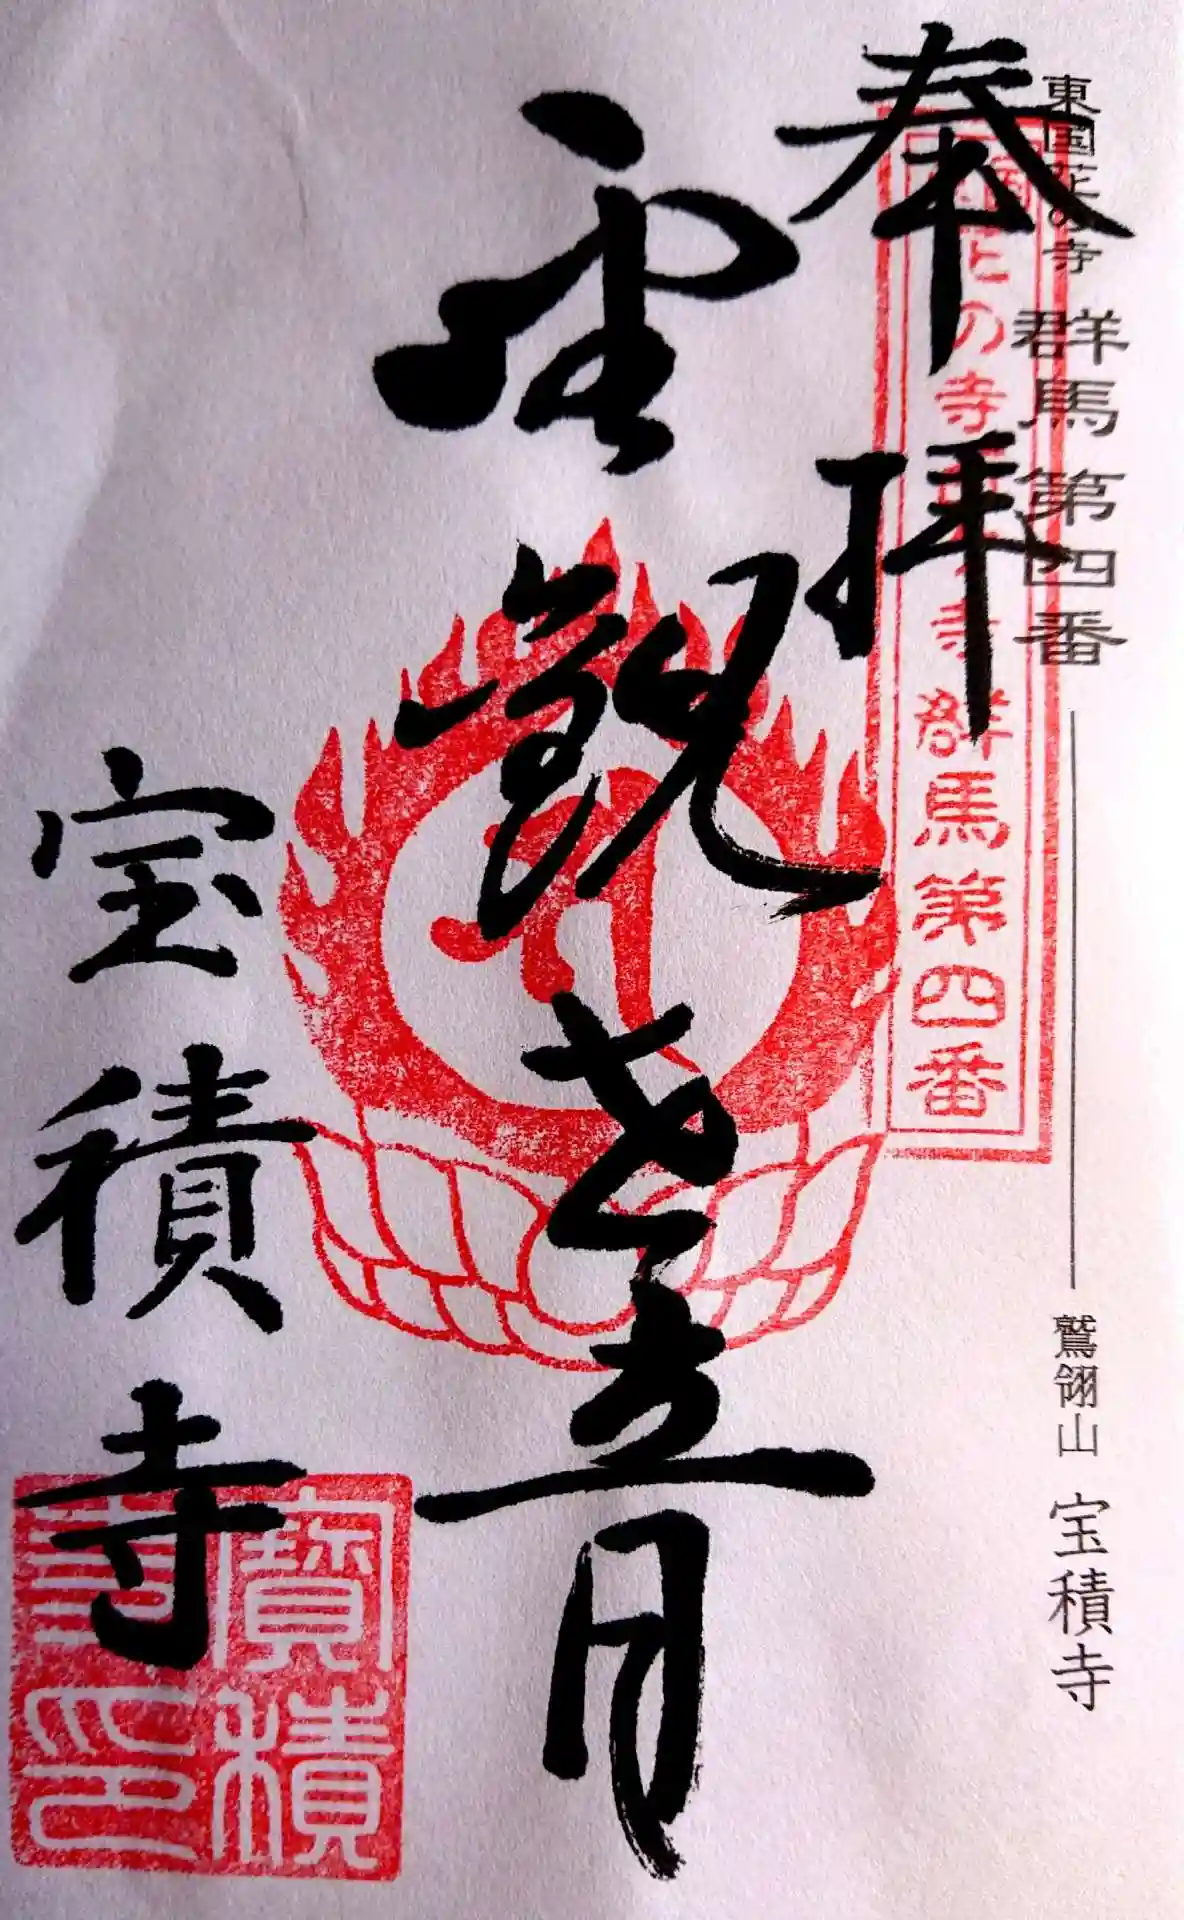 東国花の寺 群馬第四番 鷲翎山 宝積寺
奉拝
の寺 群馬第四番
聖観世音
宝積寺
寶積
寺印